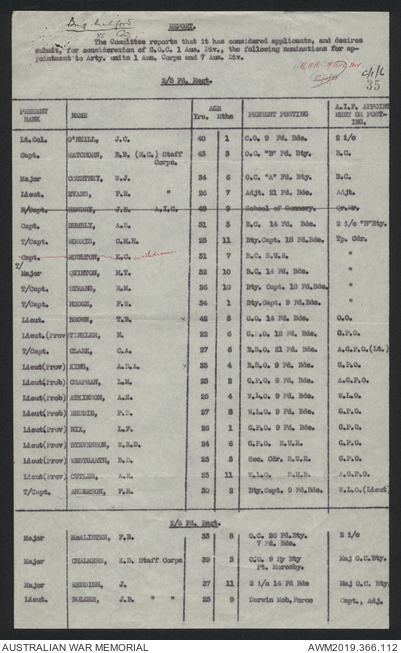 REPORT.
The Committee reports that it has considered applicants, and desires
submit, for consideration of G.O.C. 1 Aus. Div., the following nominations for ap-
pointment to Arty. units 1 Aus. Corps and 7 Aus. Div.
35
2/5 Fd. Regt.
PRESENT RANK NAME AGE Yrs. Mths PRESENT POSTING A.I.F. APPOINTMENT OR POSTING.
Lt.Col. O'NEILL, J.C. 40 1 C.O. 9 Fd. Bde. 2 i/c
Capt. B.E. (M.C.) Staff Corps. 43 3 O.C. "B" Fd. Bty. B.C.
Major COURTNEY, W.J. 34 6 O.C. "A" Fd. Bty. B.C.
Lieut. EVANS, F.R. " 26 7 Adjt. 21 Fd. Bde. Adjt.
H/Capt. J.H. A.I.C. 49 9 School of Gunnery. Qr.Mr.
Capt. A.R. 31 3 B.C. 14 Fd. Bde. 2 i/c "F"Bty.
T/Capt. C.M.H. 25 11 Bty.Capt. 18 Fd.Bde. Tp. Cdr.
Capt. HOUSTON, K.C. withdrawn 31 7 B.C. S.U.R. "
T/Major QUINTON, M.T. 32 10 B.C. 14 Fd. Bde. "
T/Capt. STRANG, R.M. 26 10 Bty. Capt. 18 Fd.Bde. "
T/Capt. HEDGE, F.W. 34 1 Bty.Capt. 9 Fd.Bde. "
Lieut. BROWN, T.B. 42 5 O.O. 14 Fd. Bde. O.O.
Lieut.(Prov) M. 22 6 G.P.O. 18 Fd. Bde. G.P.O.
T/Capt. CLARK, C.A. 27 6 R.S.O. 21 Fd. Bde. A.G.P.O.(Lt.)
Lieut(Prov) KING, A.D.A. 33 4 R.S.O. 9 Fd. Bde. G.P.O.
Lieut(Prob) CHAPMAN, L.M. 23 2 G.P.O. 9 Fd. Bde. A.G.P.O.
Lieut(Prob) ATKINSON, A.K. 25 4 W.L.O. 9 Fd. Bde. G.P.O.
Lieut(Prob) P.D. 27 8 W.L.O. 9 Fd. Bde. G.P.O.
Lieut(Prov) NIX, L.F. 26 1 G.P.O. 9 Fd. Bde. G.P.O.
Lieut(Prov) STEVENSON, W.H.D. 24 6 G.P.O. S.U.R. G.P.O.
Lieut(Prov) WESTGARTH, D.D. 23 3 Sec. Cdr. S.U.R. G.P.O.
Lieut(Prov) CUTLER, A.R. 23 11 W.L.O. S.U.R. A.G.P.O.
T/Capt. ANDERSON, F.R. 30 2 Bty.Capt. 9 Fd.Bde. W.L.O.(Lieut)
2/6 Fd. Regt.
Major McALISTER, F.B. 33 8 O.C. 26 Fd.Bty. 7 Fd. Bde. 2 i/c
Major CHALMERS, K.D. Staff Corps 39 5 C/O. 9 Hy Bty Pt. Moresby. Maj O.C.Bty.
Major REDDISH, J. 37 11 2 i/c 14 Fd Bde Maj O.C. Bty.
Lieut. BOLGER, J.B. " " 25 9 Darwin Mob.Force Capt., Adj.
AUSTRALIAN WAR MEMORIAL
AWM2019.366.112